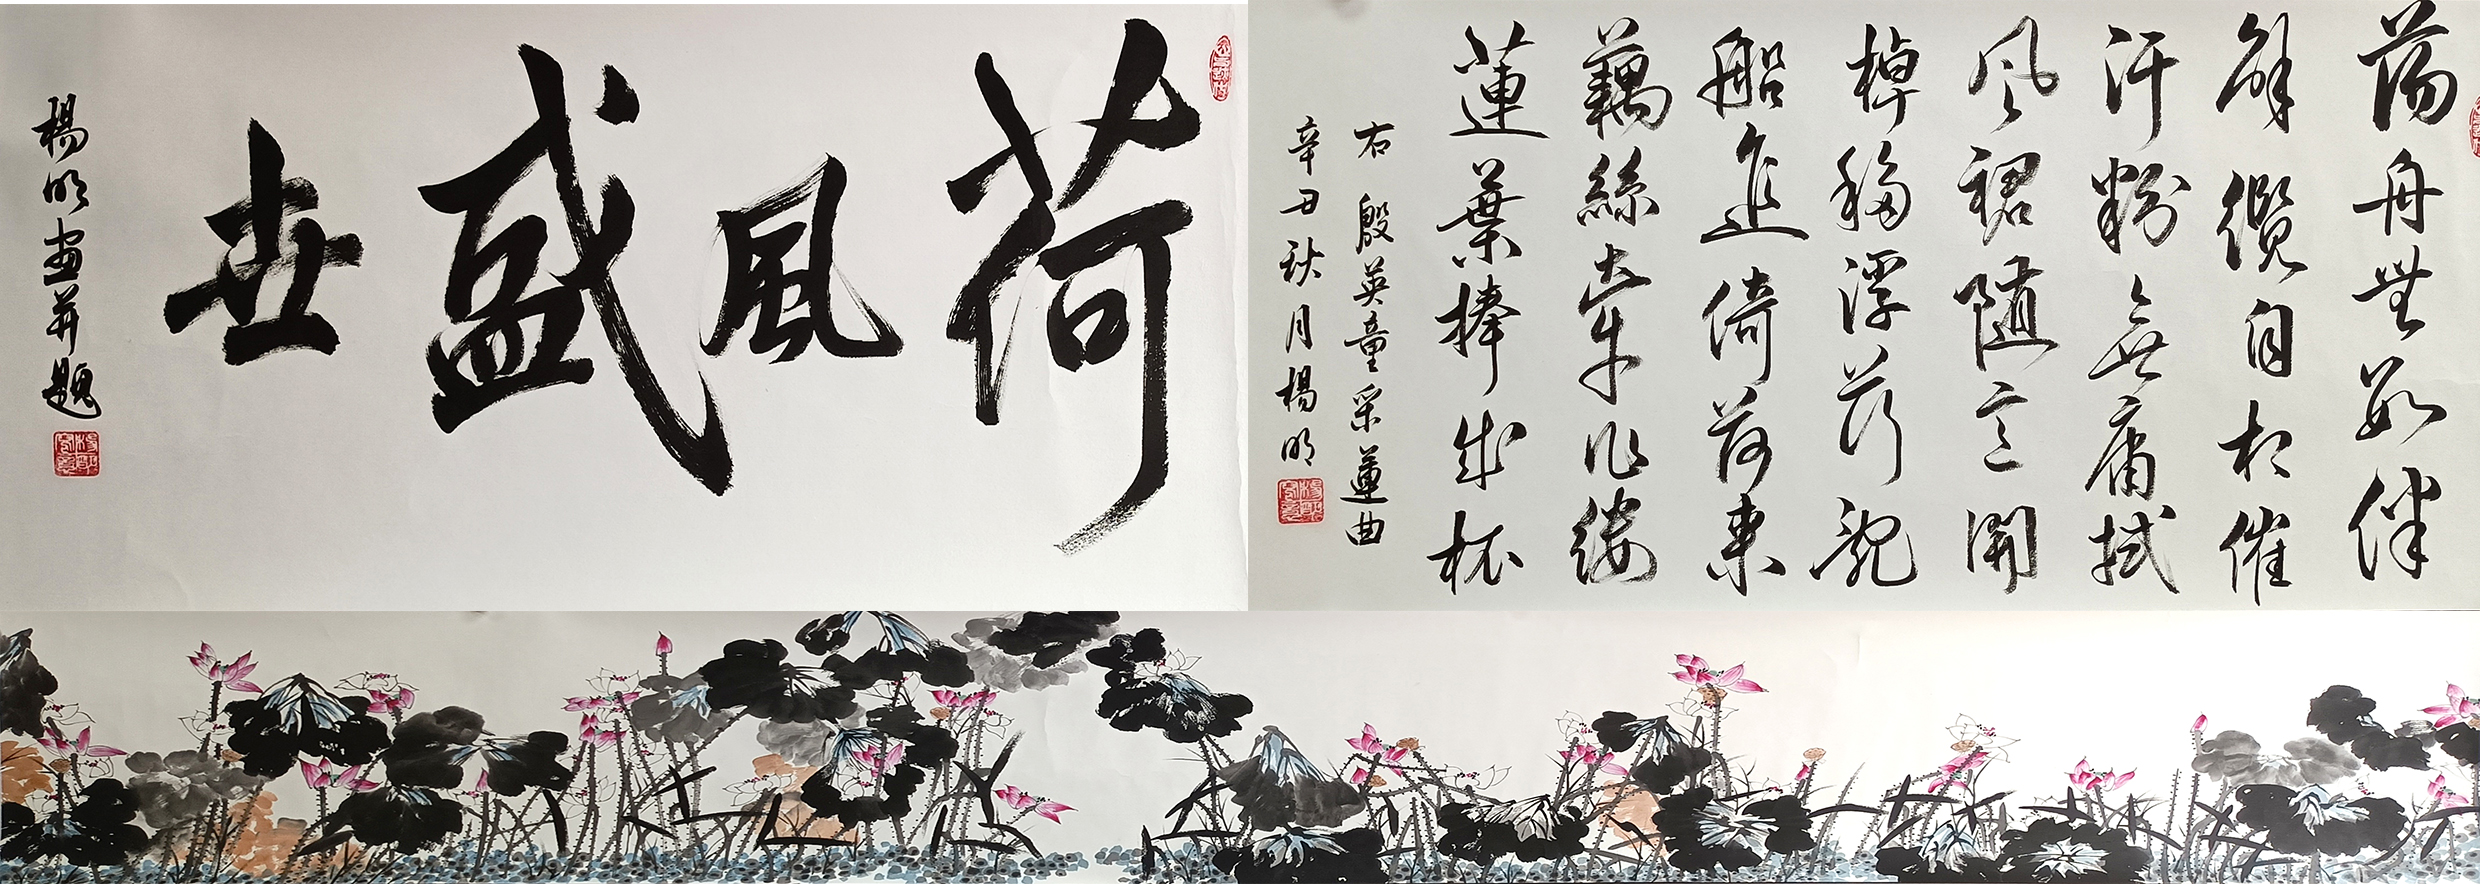 荷風盛世
楊明畫并題
蕩舟無數伴
解纜自相催
汗粉無庸拭
風裙隨意開
棹移浮荇亂
船進倚荷來
藕絲牽作縷
蓮葉捧成杯
右殷英童采蓮曲
辛丑秋月楊明